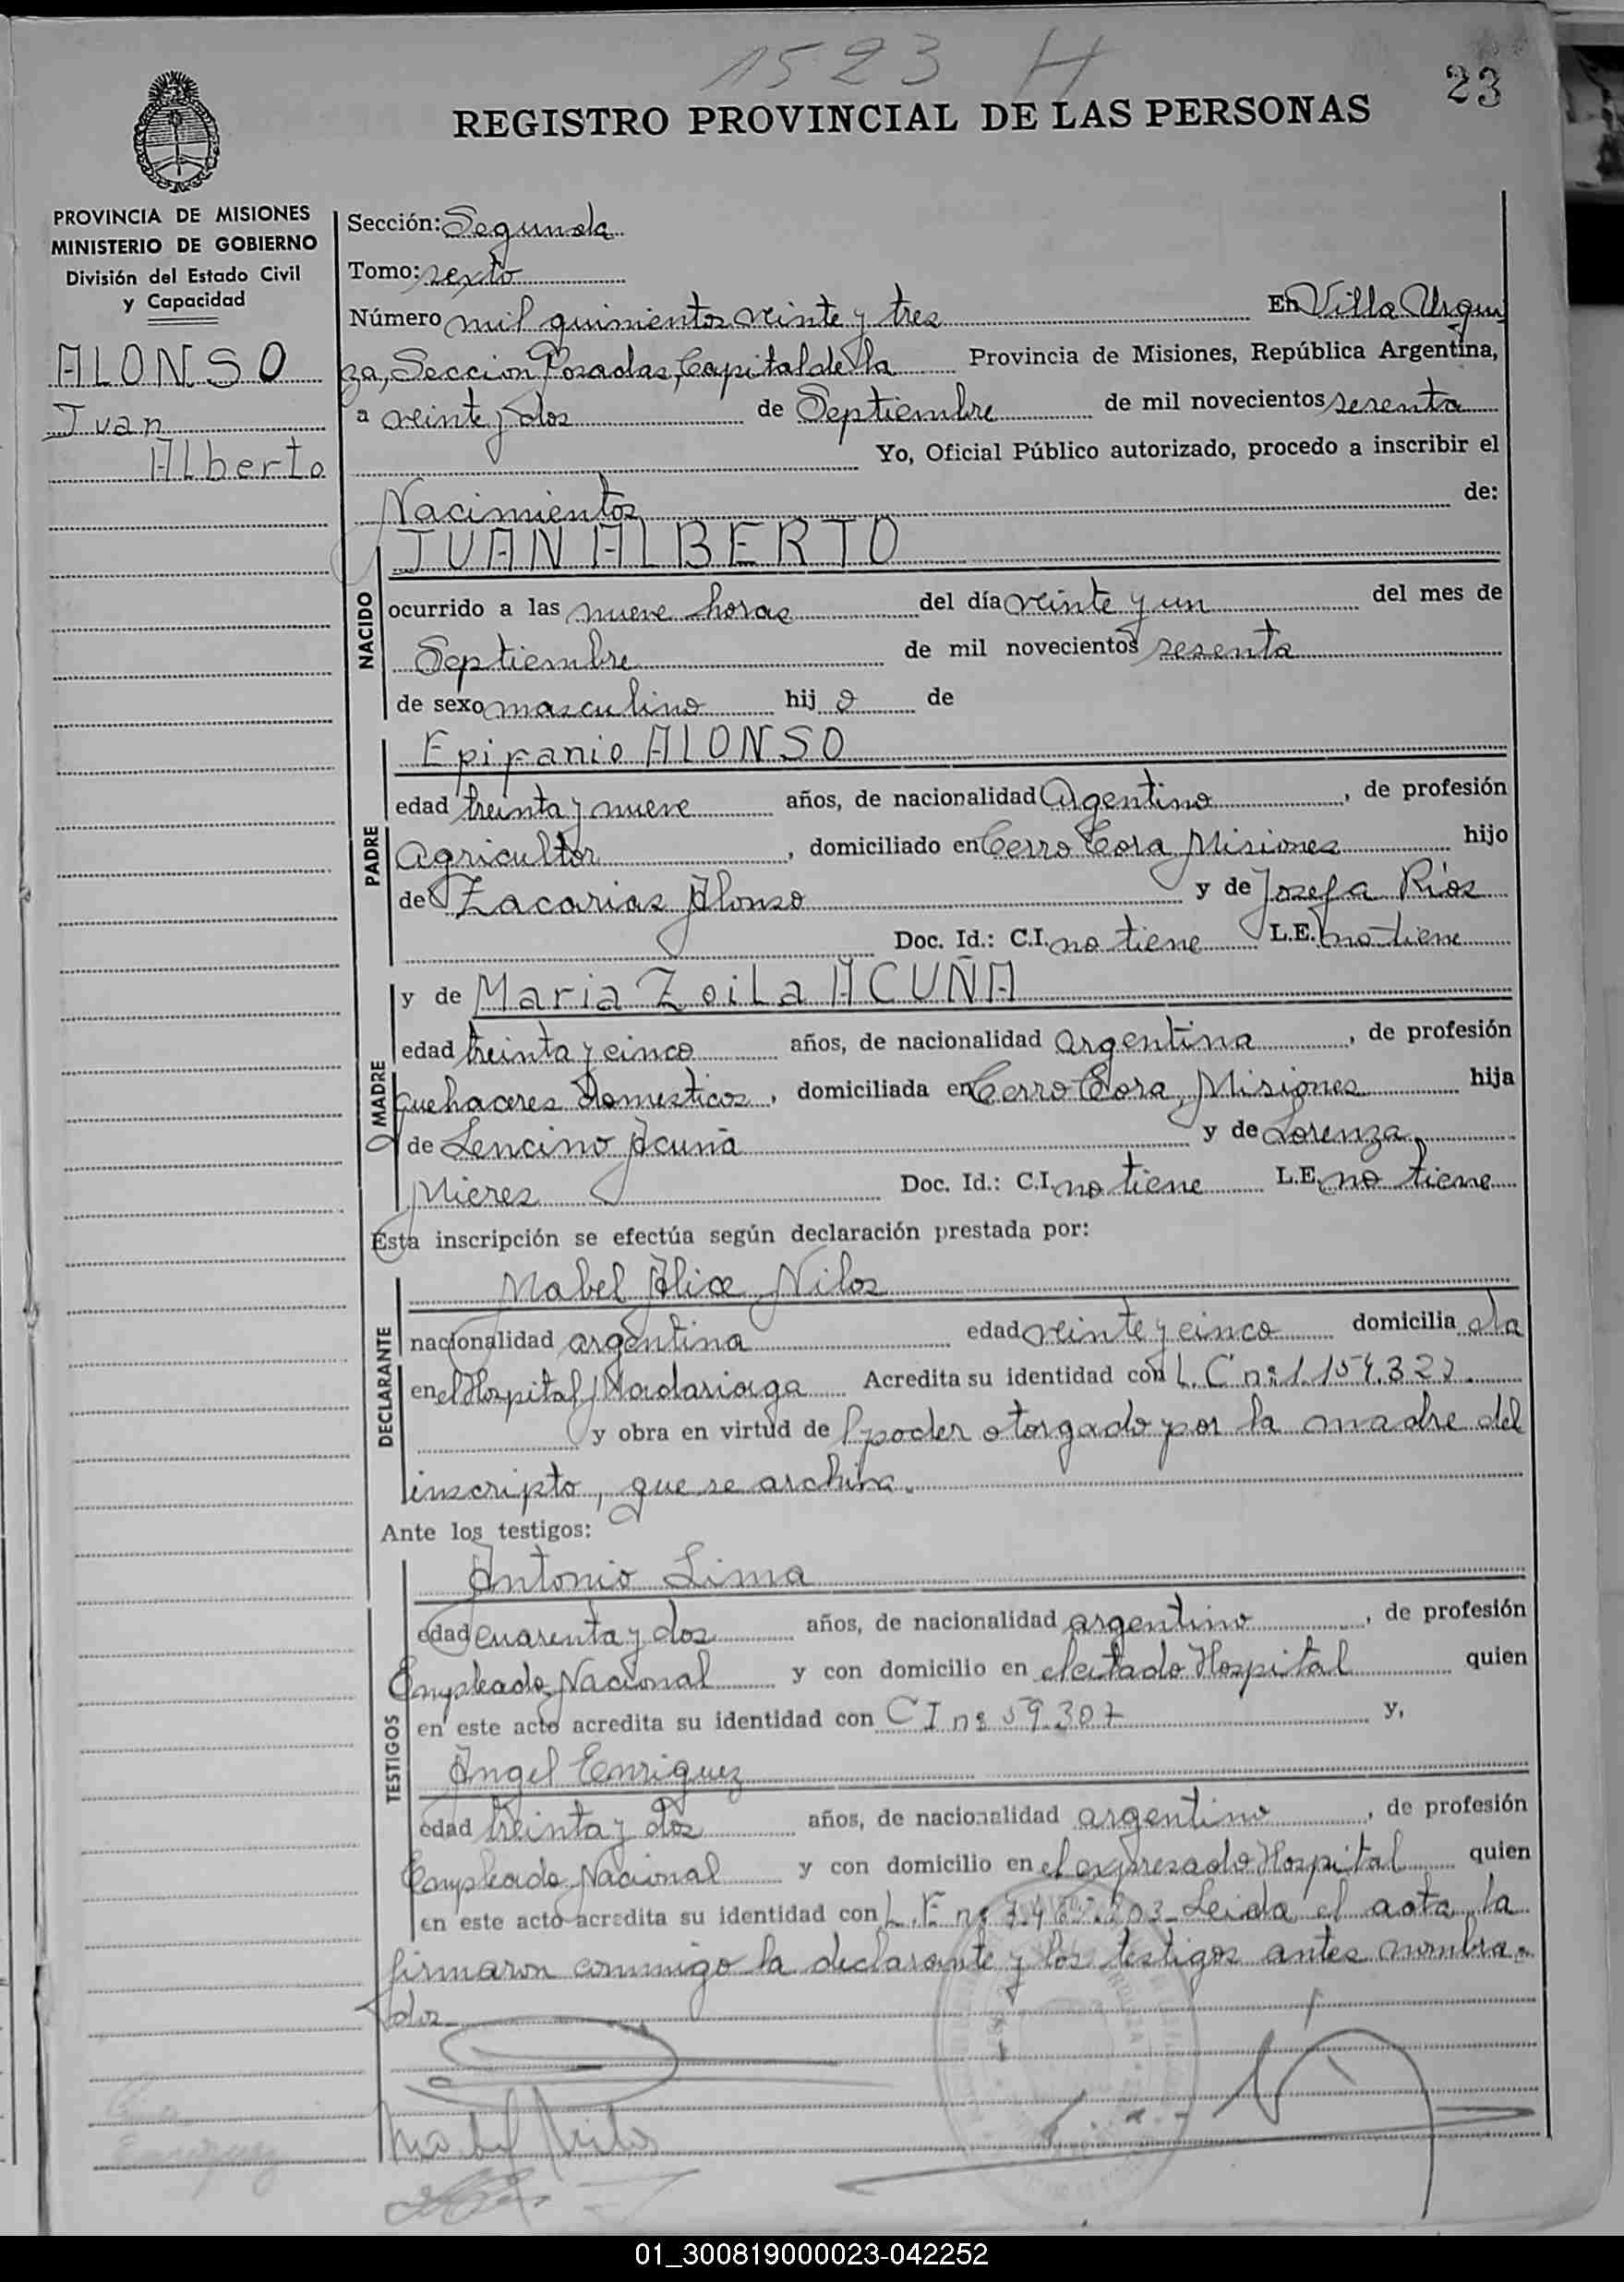 1523 H
23
REGISTRO PROVINCIAL DE LAS PERSONAS
PROVINCIA DE MISIONES
MINISTERIO DE GOBIERNO
División del Estado Civil
y Capacidad
ALONSO
Juan
Alberto
Sección: Segunda
Tomo: sexto
Número mil quinientos veinte y tres En Villa Urqui
za, Seccion Posadas, Capital de la Provincia de Misiones, República Argentina,
a veinte y dos de Septiembre de mil novecientos sesenta
Yo, Oficial Público autorizado, procedo a inscribir el
Nacimientos de:
NACIDO
JUAN ALBERTO
ocurrido a las nueve horas del día veinte y un del mes de
Septiembre de mil novecientos sesenta
de sexo masculino hijo de
PADRE
Epifanio ALONSO
edad treinta y nueve años, de nacionalidad Argentino, de profesión
Agricultor, domiciliado en Cerro Cora, Misiones hijo
de Zacarias Alonso y de Josefa Ríos
Doc. Id.: C.I. no tiene L.E. no tiene
MADRE
y de Maria Zoila ACUÑA
edad treinta y cinco años, de nacionalidad argentina, de profesión
quehaceres domesticos, domiciliada en Cerro Cora, Misiones hija
de Lencino Acuña y de Lorenza
Mieres Doc. Id.: C.I. no tiene L.E. no tiene
Esta inscripción se efectúa según declaración prestada por:
DECLARANTE
Mabel Alice Nilos
nacionalidad argentina edad veinte y cinco domicilia da
en el Hospital Madariaga Acredita su identidad con L.C nº 1.154.327.
y obra en virtud de poder otorgado por la madre del
inscripto, que se archiva.
Ante los testigos:
TESTIGOS
Antonio Lima
edad cuarenta y dos años, de nacionalidad argentino, de profesión
Empleado Nacional y con domicilio en el citado Hospital quien
en este acto acredita su identidad con CI nº 59.307 y,
Angel Enriquez
edad treinta y dos años, de nacionalidad argentino, de profesión
Empleado Nacional y con domicilio en el expresado Hospital quien
en este acto acredita su identidad con L.E nº Leida el acta, la
firmaron conmigo la declarante y los testigos antes nombra-
dos
01_300819000023-042252